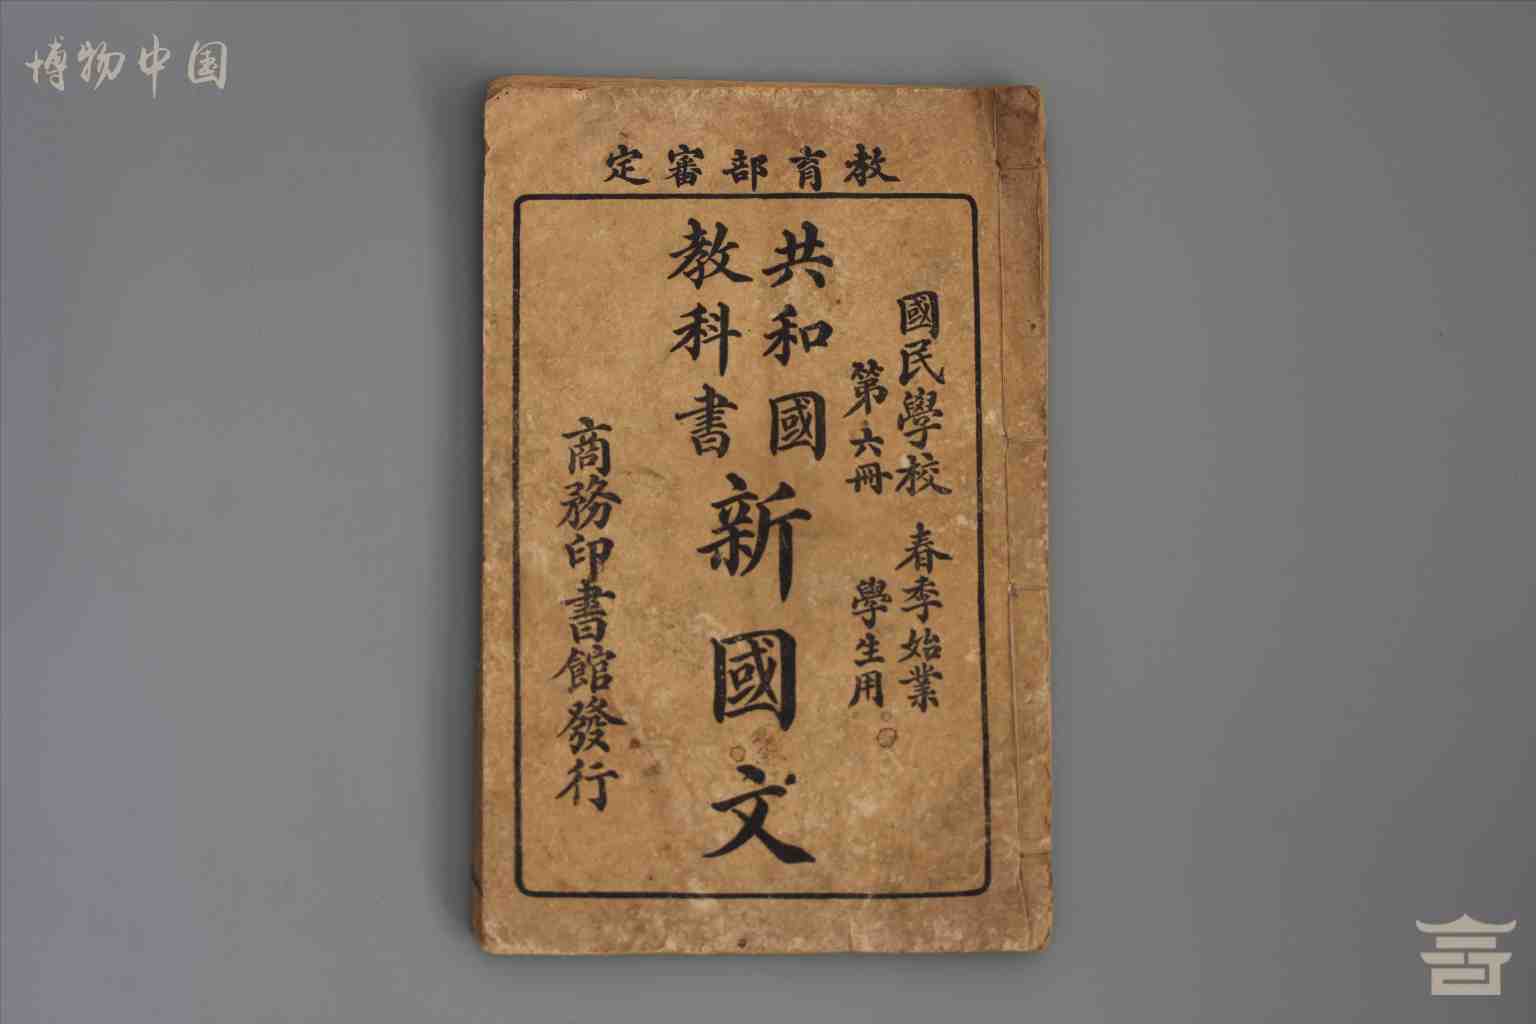 博物中国
教育部審定
國民學校 春季始業
第六冊 學生用
共和國
教科書
新國文
商務印書館發行